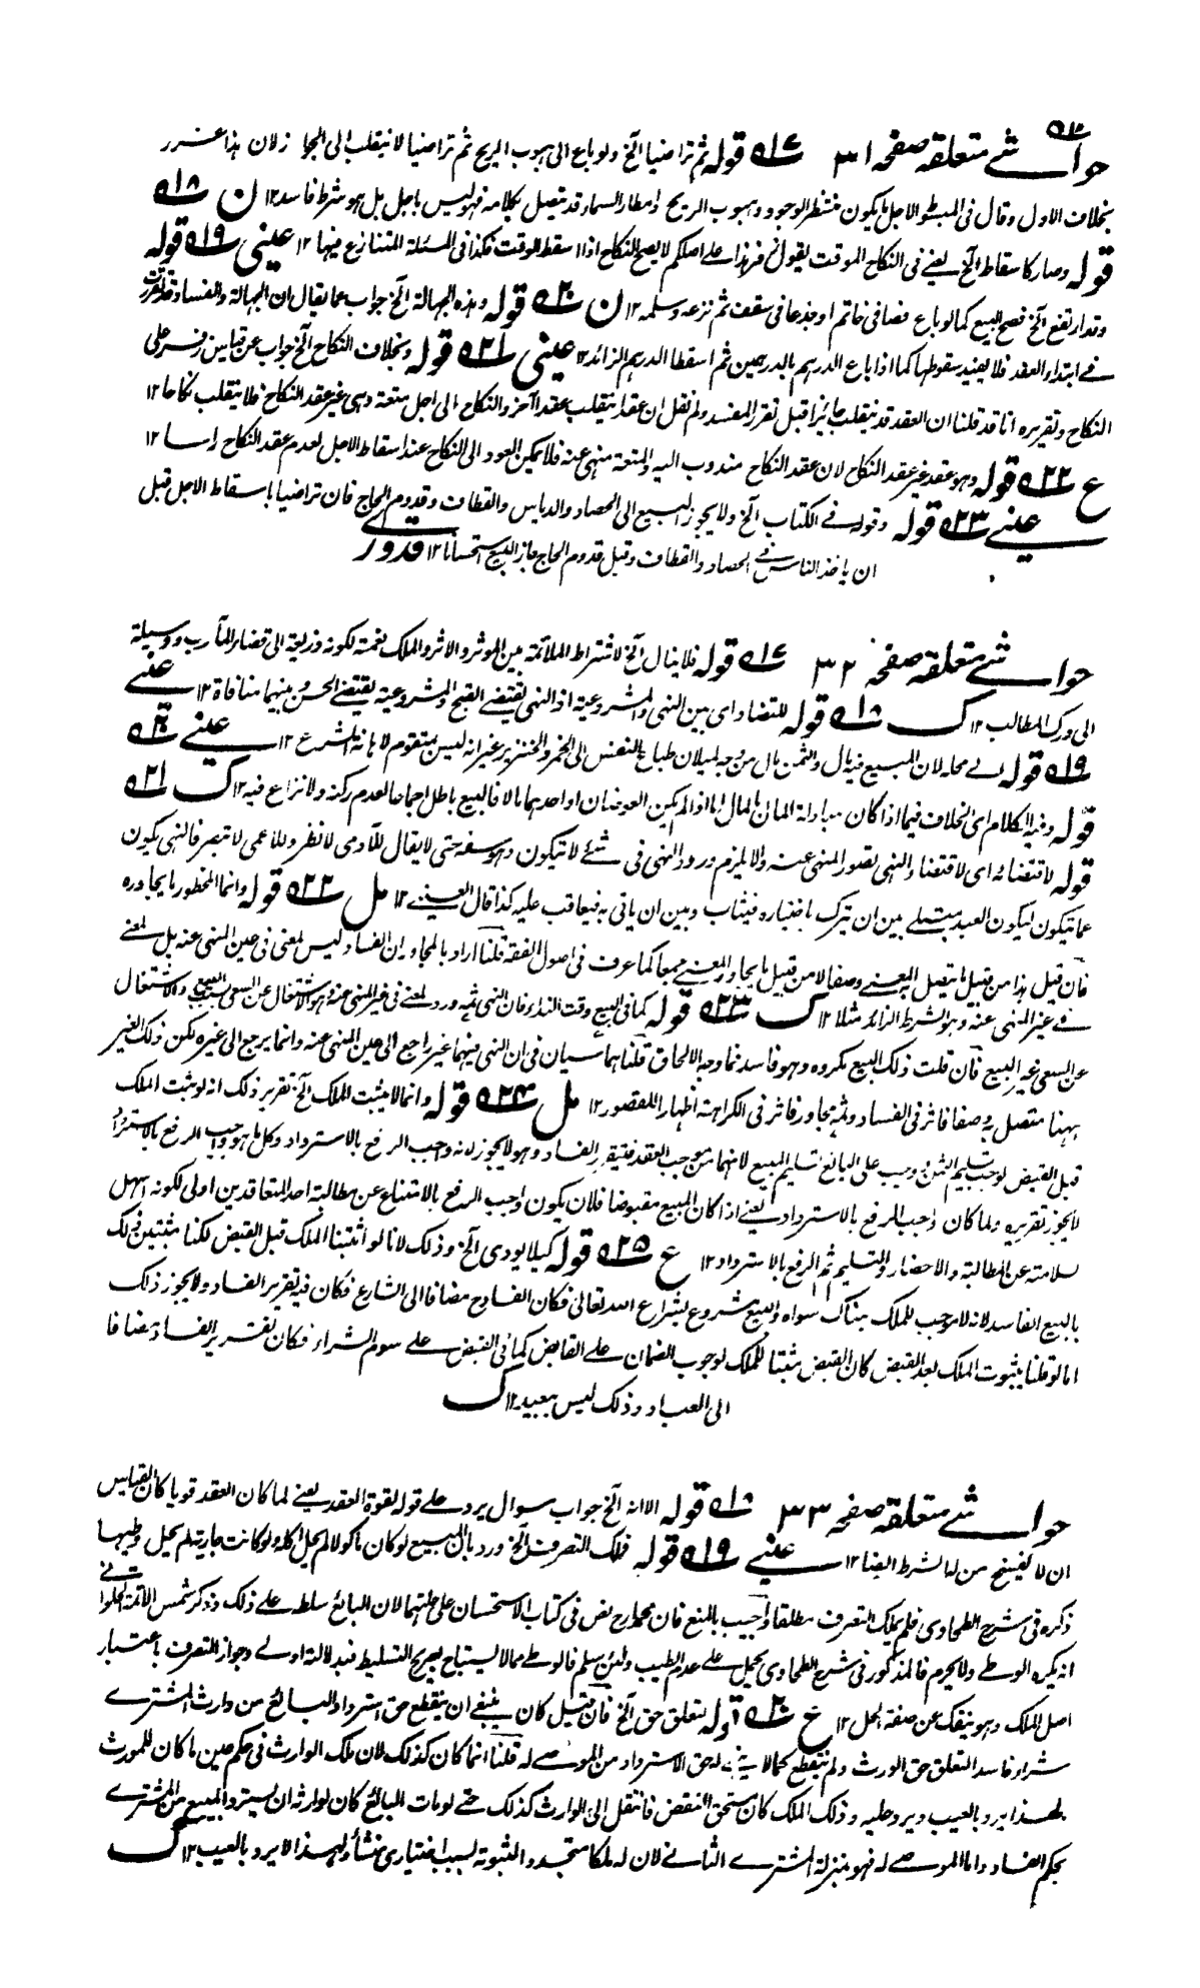 حواشے متعلقہ صفحہ ۳۱ ۵۱۷ قولہ ثم تراضیا الخ ولو باع الی ہبوب الریح ثم تراضیا لا ینقلب الی الجواز لان ہذا غرر
بخلاف الاول وقال فی المبسوط الاجل ما یکون منتظر الوجود وہبوب الریح وامطار السماء قد یتصل بکلامہ فہو لیس باجل بل ہو شرط فاسد ۱۲ ن ۵۱۸
قولہ وصار کاسقاط الخ یعنے فی النکاح الموقت یقول زفر ہذا علے اصلکم لا یصح النکاح اذا اسقط الوقت فکذا فی المسئلۃ المتنازع فیہا ۱۲ عینی ۵۱۹ قولہ
وقد ارتفع الخ فصح البیع کما لو باع فصا فی خاتم او جذعا فی سقف ثم نزعہ وسلمہ ۱۲ ن ۵۲۰ قولہ وہذہ الجہالۃ الخ جواب عما یقال ان الجہالۃ والفساد قد تقررت
فے ابتداء العقد فلا یفید سقوطہا کما اذا باع الدرہم بالدرہمین ثم اسقطا الدرہم الزائد ۱۲ عینی ۵۲۱ قولہ وبخلاف النکاح الخ جواب عن قیاس زفر علی
النکاح وتقریرہ انا قد قلنا ان العقد قد ینقلب جائزا قبل تقرر المفسد ولم نقل ان عقدا ینقلب عقدا آخر والنکاح الی اجل متعۃ وہی غیر عقد النکاح فلا ینقلب نکاحا ۱۲
ع ۵۲۲ قولہ وہو عقد غیر عقد النکاح لان عقد النکاح مندوب الیہ والمتعۃ منہی عنہ فلا یمکن العود الی النکاح عند اسقاط الاجل لعدم عقد النکاح راسا ۱۲
عینے ۵۲۳ قولہ وقولہ فے الکتاب الخ ولا یجوز البیع الی الحصاد والدیاس والقطاف وقدوم الحاج فان تراضیا باسقاط الاجل قبل
ان یاخذ الناس فے الحصاد والقطاف وقبل قدوم الحاج جاز البیع استحسانا ۱۲ قدوری
حواشے متعلقہ صفحہ ۳۲ ۵۱۷ قولہ فلا ینال الخ لاشتراط الملائمۃ بین الموثر والاثر والملک نعمۃ لکونہ ذریعۃ الی قضاء المآرب ووسیلۃ
الی درک المطالب ۱۲ ک ۵۱۸ قولہ للتضاد ای بین النہی والمشروعیۃ اذ النہی یقتضے القبح والمشروعیۃ یقتضے الحسن وبینہما منافاۃ ۱۲ عینے
۵۱۹ قولہ فے محلہ لان المبیع فیہ مال والثمن مال من وجہ لمیلان طباع النفس الی الخمر والخنزیر غیر انہ لیس بمتقوم لاہانۃ الشرع ۱۲ عینے ۵۲۰
قولہ وفیہ الکلام ای الخلاف فیما اذا کان مبادلۃ المال بالمال اما اذا لم یکن العوضان او احدہما مالا فالبیع باطل اجماعا لعدم رکنہ ولا نزاع فیہ ۱۲ ک ۵۲۱
قولہ لاقتضائہ ای لاقتضاء النہی تصور المنہی عنہ والا یلزم ورود النہی فی شئے لا یتکون وہو سفہ حتی لا یقال للآدمی لا تنظر وللاعمی لا تبصر فالنہی یکون
عما یتکون لیکون العبد مبتلے بین ان یترک باختیارہ فیثاب وبین ان یاتی بہ فیعاقب علیہ کذا قال العینے ۱۲ مل ۵۲۲ قولہ وانما المحظور ما یجاورہ
فان قیل ہذا من قبیل ما یتصل بالمعنے وصفا لا من قبیل ما یجاور المعنے جمعا کما عرف فی اصول الفقہ قلنا اراد بالمجاور ان الفساد لیس لمعنی فی عین المنہی عنہ بل لمعنے
فے غیر المنہی عنہ وہو الشرط الزائد مثلا ۱۲ ک ۵۲۳ قولہ کما فی البیع وقت النداء فان النہی ثمہ ورد لمعنے فی غیر المنہی عنہ وہو الاشتغال عن السعی بسبب البیع والاشتغال
عن السعی غیر البیع فان قلت ذلک البیع مکروہ وہو فاسد فما وجہ الالحاق قلنا ہما سیان فی ان النہی فیہما غیر راجع الی عین المنہی عنہ وانما یرجع الی غیرہ لکن ذلک الغیر
ہہنا متصل بہ وصفا فاثر فی الفساد وثمۃ مجاور فاثر فی الکراہۃ اظہارا للقصور ۱۲ مل ۵۲۴ قولہ وانما لا یثبت الملک الخ تقریر ذلک انہ لو ثبت الملک
قبل القبض لوجب تسلیم الثمن ووجب علی البائع تسلیم المبیع لانہما من موجب العقد فیتقرر الفساد وہو لا یجوز لانہ واجب الرفع بالاسترداد وکل ما ہو واجب الرفع بالاسترداد
لا یجوز تقریرہ ولما کان واجب الرفع بالاسترداد یعنے اذا کان المبیع مقبوضا فلان یکون واجب الرفع بالامتناع عن مطالبۃ احد المتعاقدین اولی لکونہ اسہل
لسلامتہ عن المطالبۃ والاحضار والتسلیم ثم الرفع بالاسترداد ۱۲ ع ۵۲۵ قولہ کیلا یودی الخ وذلک لانا لو اثبتنا الملک قبل القبض لکنا مثبتین ذلک
بالبیع الفاسد لانہ لا موجب للملک ہناک سواہ والبیع مشروع بشراع اللہ تعالی فکان الفساد ح مضافا الی الشارع فکان فیہ تقریر الفساد ولا یجوز ذلک
اما لو قلنا بثبوت الملک بعد القبض کان القبض مثبتا للملک لوجوب الضمان علے القابض کما فی القبض علے سوم الشراء فکان تقریر الفساد مضافا
الی العباد وذلک لیس ببعید ۱۲ ک
حواشے متعلقہ صفحہ ۳۳ ۵۱۸ قولہ الا انہ الخ جواب سوال یرد علے قولہ لقوۃ العقد یعنے لما کان العقد قویا کان القیاس
ان لا یفسخ من لہ الشرط ایضا ۱۲ عینے ۵۱۹ قولہ فملک التصرف الخ ورد بان المبیع لو کان ماکولا لم یحل اکلہ ولو کانت جاریۃ لم یحل وطیہا
ذکرہ فی شرح الطحاوی فلم یملک التصرف مطلقا واجیب بالمنع فان محمدا رح نص فی کتاب الاستحسان علی حلتہا لان البائع سلطہ علے ذلک وذکر شمس الائمۃ الحلوانے
انہ یکرہ الوطے ولا یحرم فالمذکور فی شرح الطحاوی یحمل علے عدم الطیب ولئن سلم فالوطے مما لا یستباح بصریح التسلیط فبدلالتہ اولے وجواز التصرف باعتبار
اصل الملک وہو ینفک عن صفۃ الحل ۱۲ ع ۵۲۰ قولہ لتعلق حق الخ فان قیل کان ینبغے ان ینقطع حق استرداد البائع من وارث المشترے
شراء فاسدا لتعلق حق الورثۃ ولم ینقطع کما لا یثبت لہ حق الاسترداد من الموصے لہ قلنا انما کان کذلک لان ملک الوارث فی حکم عین ما کان للمورث
لہذا یرد بالعیب ویرد علیہ وذلک الملک کان مستحق النقض فانتقل الی الوارث کذلک حتے لو مات البائع کان لوارثہ ان یسترد المبیع من المشترے
بحکم الفساد واما الموصے لہ فہو بمنزلۃ المشترے الثانے لان لہ ملکا متجددا لثبوتہ بسبب اختیاری منشأ ولہذا لا یرد بالعیب ۱۲ ک